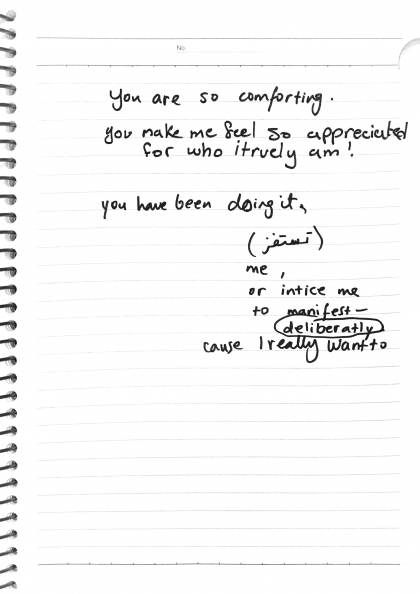 No
You are so comforting.
you make me feel so appreciated
for who itruely am!
you have been doing it,
(تستفز)
me,
or intice me
to manifest-
deliberatly
cause I really want to